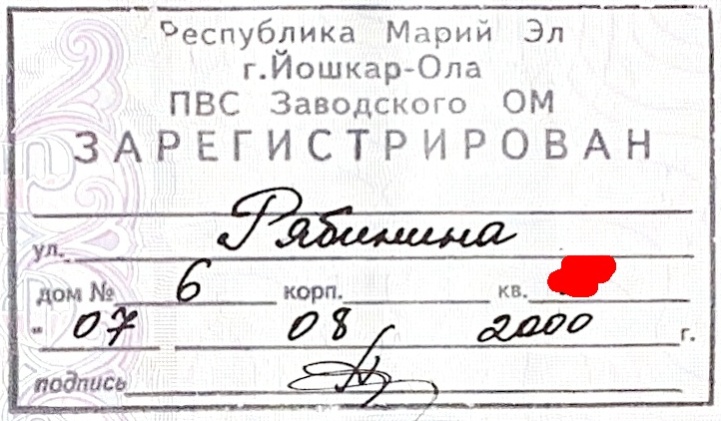 Республика Марий Эл
г.Йошкар-Ола
ПВС Заводского ОМ
ЗАРЕГИСТРИРОВАН
ул. Рябинина
дом № 6 корп. кв.
" 07 08 2000 г.
подпись